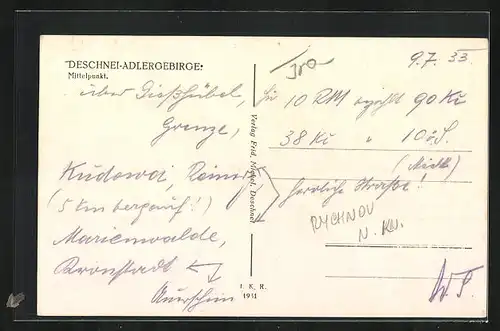 DESCHNEI-ADLERGEBIRGE:
Mittelpunkt.
über Gießhübel,
Grenze,
Kudowa, Reinerz
(5 km bergauf!)
Marienwalde,
Kronstadt
Auerschein
Verlag Frid. Deschnei
J. K. R.
1931
9.7.33
für 10 RM erhält 90 Kč
38 Kč " 10 ö.S.
herrliche Straße!
RYCHNOV
N. KN.